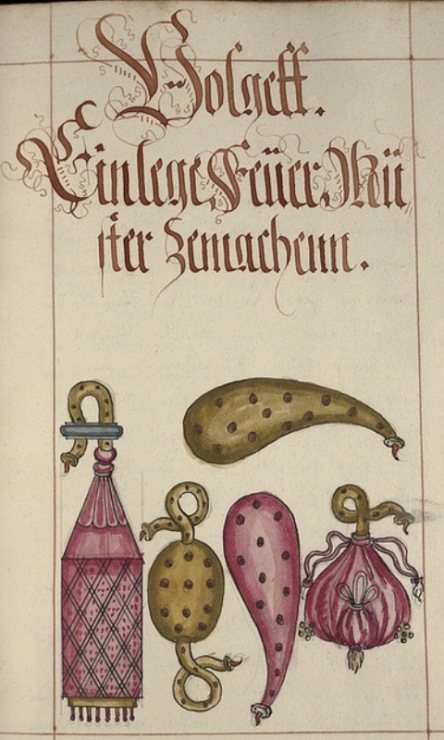 Volgett.
Einlege Feüer, Mü,
ster Zemachenn.